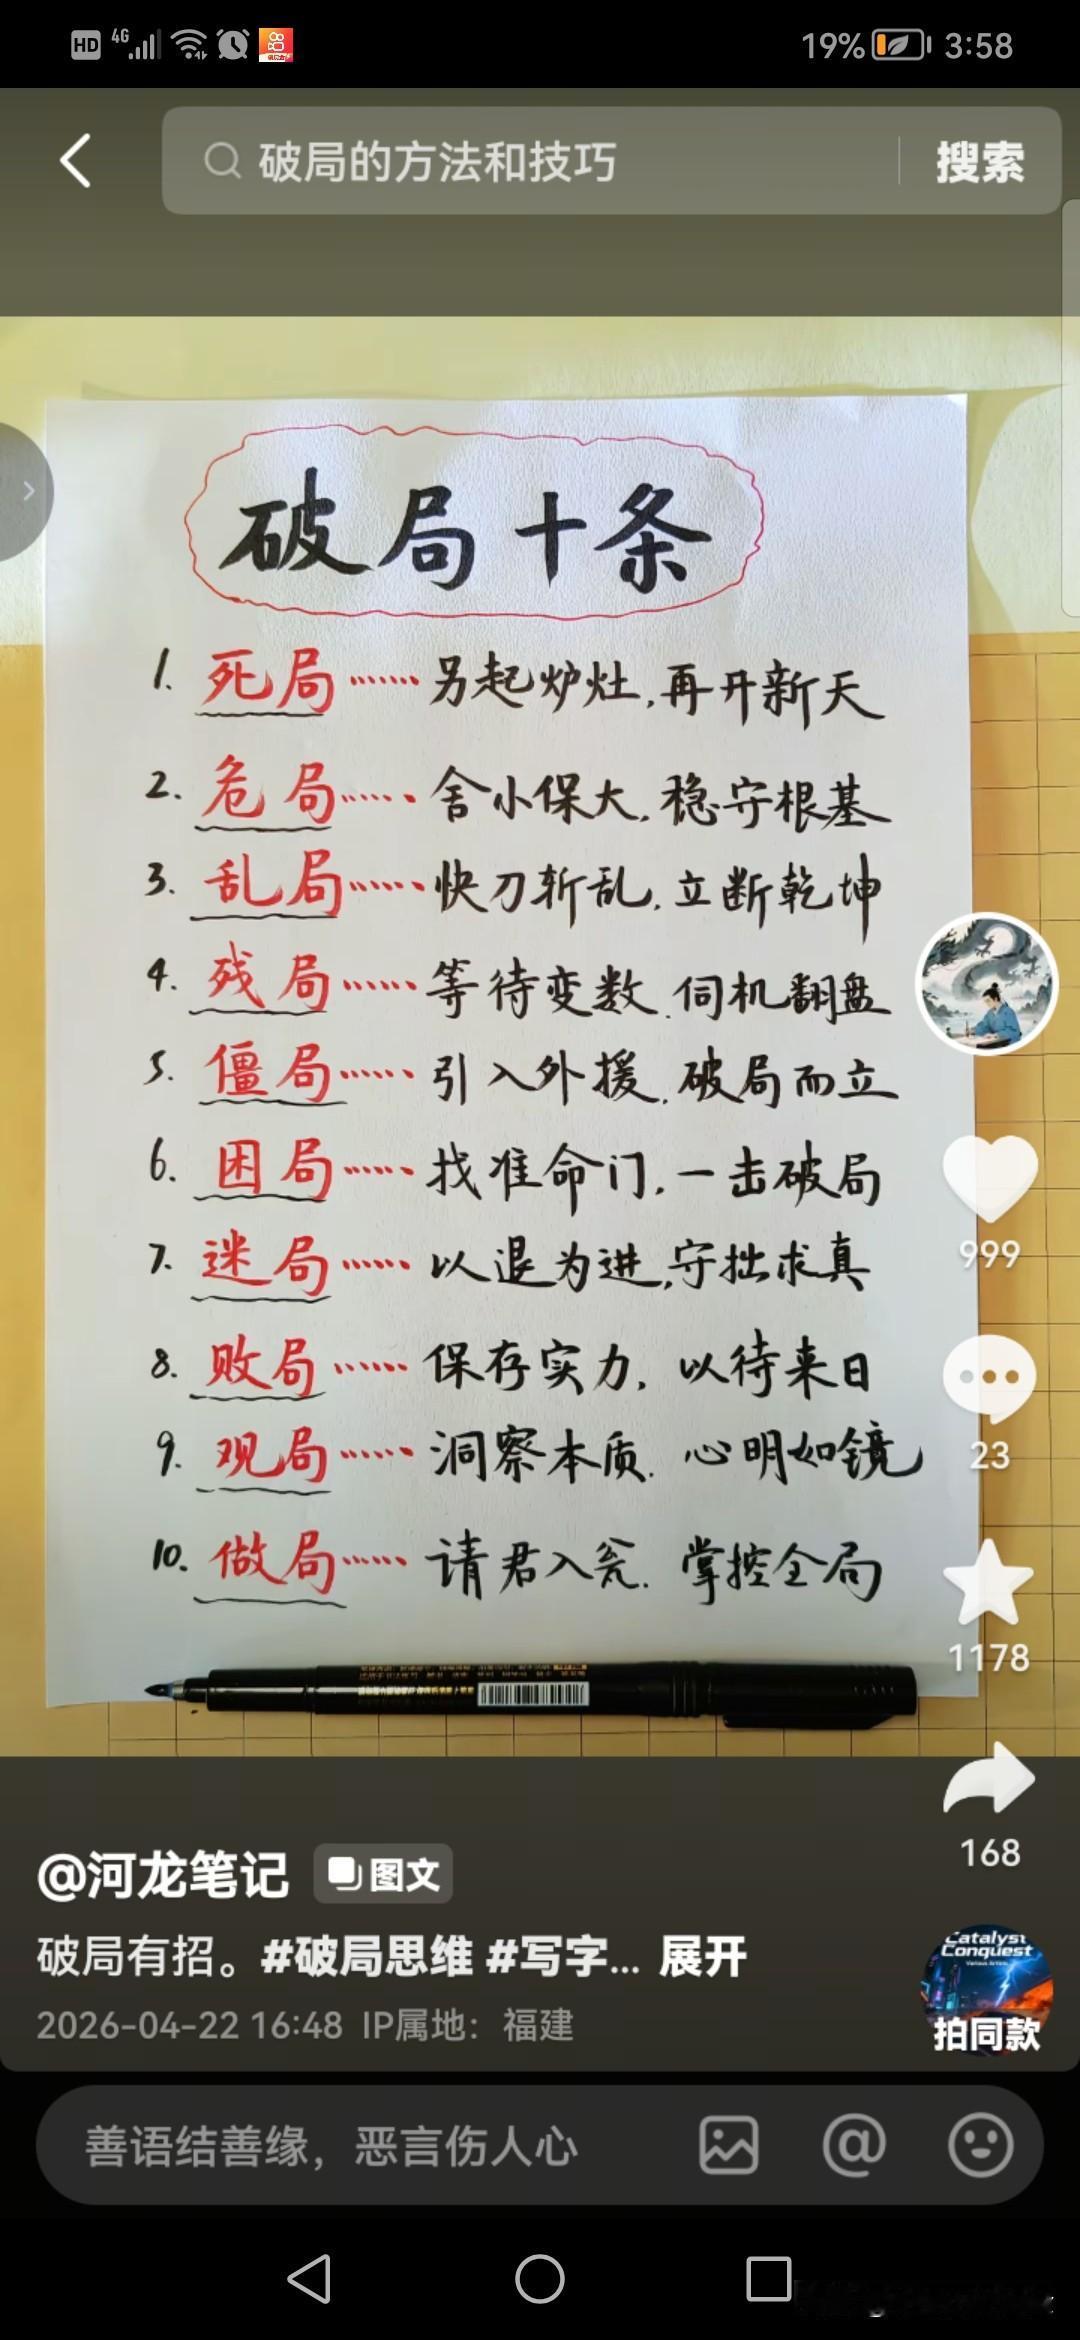 HD 4G 19% 3:58
破局的方法和技巧 搜索
破局十条
1. 死局……另起炉灶,再开新天
2. 危局……舍小保大,稳守根基
3. 乱局……快刀斩乱,立断乾坤
4. 残局……等待变数,伺机翻盘
5. 僵局……引入外援,破局而立
6. 困局……找准命门,一击破局
7. 迷局……以退为进,守拙求真
8. 败局……保存实力,以待来日
9. 观局……洞察本质,心明如镜
10. 做局……请君入瓮,掌控全局
999
23
1178
168
@河龙笔记 图文
破局有招。#破局思维 #写字... 展开
2026-04-22 16:48 IP属地：福建
Catalyst
Conquest
Various Artists
拍同款
善语结善缘，恶言伤人心